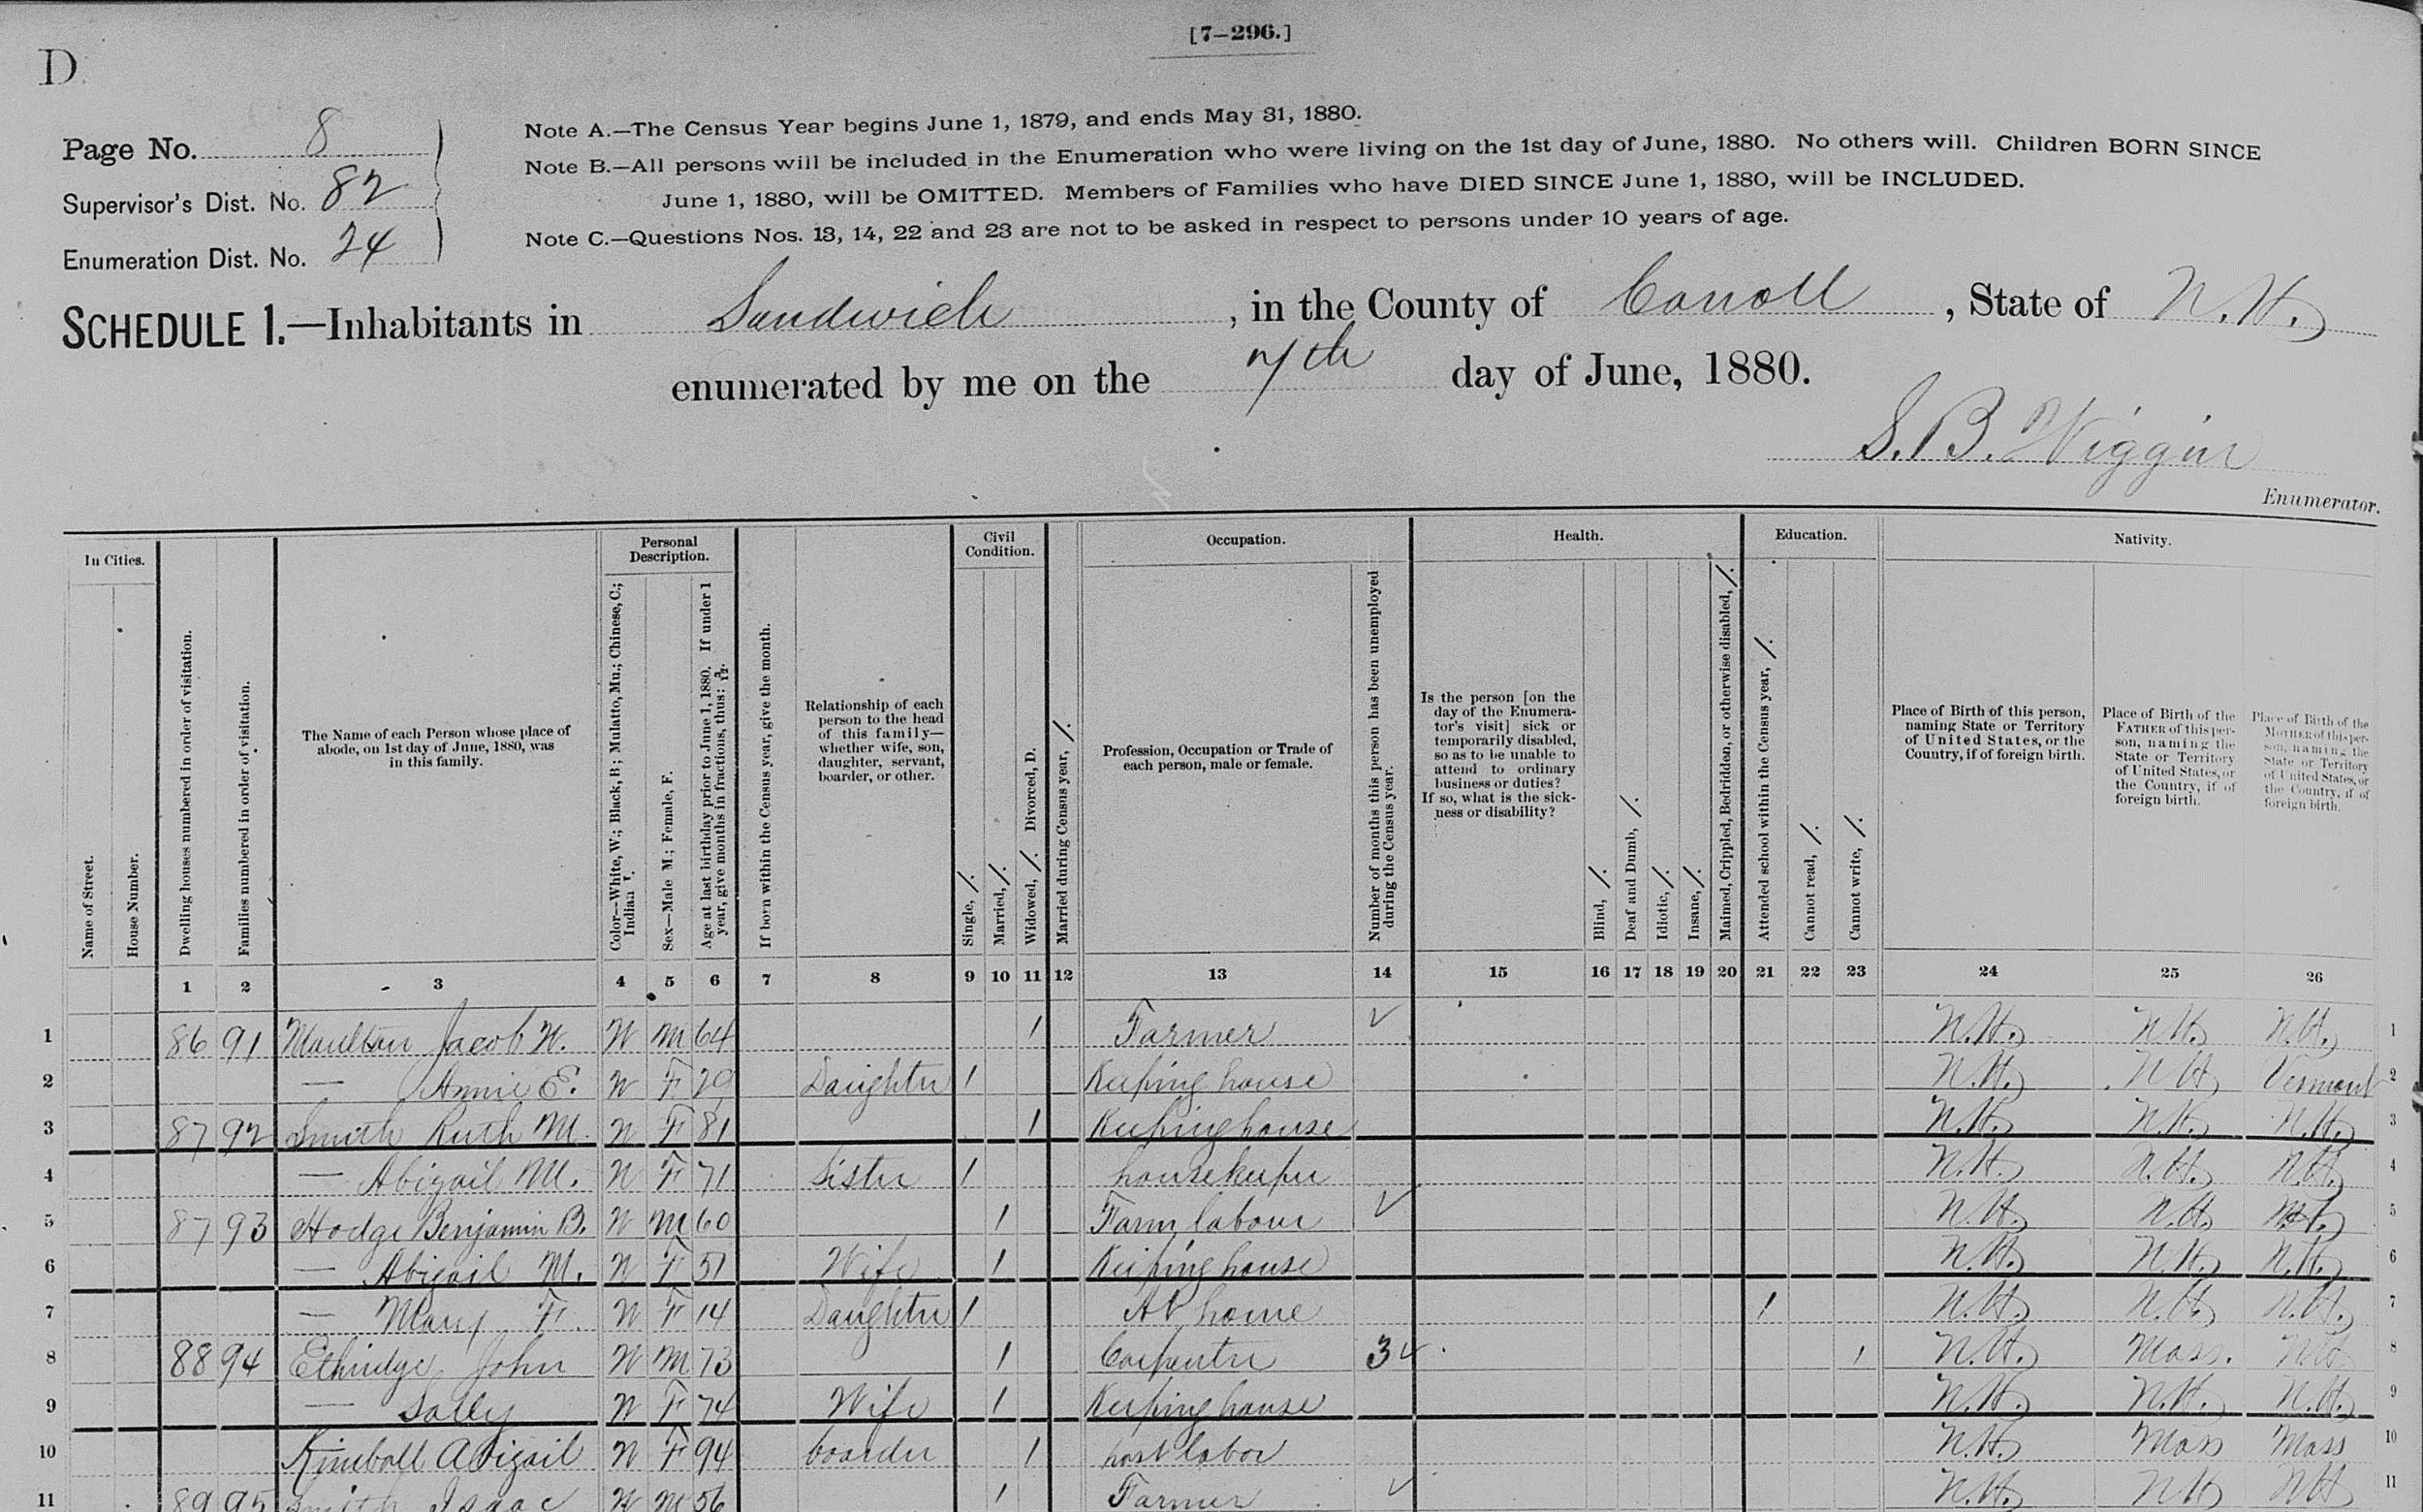 [7-296.]
D
Page No. 8
Supervisor's Dist. No. 82
Enumeration Dist. No. 24
Note A.—The Census Year begins June 1, 1879, and ends May 31, 1880.
Note B.—All persons will be included in the Enumeration who were living on the 1st day of June, 1880. No others will. Children BORN SINCE
June 1, 1880, will be OMITTED. Members of Families who have DIED SINCE June 1, 1880, will be INCLUDED.
Note C.—Questions Nos. 13, 14, 22 and 23 are not to be asked in respect to persons under 10 years of age.
SCHEDULE 1.—Inhabitants in Sandwich, in the County of Carroll, State of N.H.
enumerated by me on the 7th day of June, 1880.
S. B. Wiggin
Enumerator.
In Cities.
Personal Description.
Civil Condition.
Occupation.
Health.
Education.
Nativity.
Name of Street.
House Number.
Dwelling houses numbered in order of visitation.
Families numbered in order of visitation.
The Name of each Person whose place of
abode, on 1st day of June, 1880, was
in this family.
Color—White, W.; Black, B; Mulatto, Mu.; Chinese, C.;
Indian I.
Sex—Male M; Female, F.
Age at last birthday prior to June 1, 1880. If under 1
year, give months in fractions, thus: 3/12.
If born within the Census year, give the month.
Relationship of each
person to the head
of this family—
whether wife, son,
daughter, servant,
boarder, or other.
Single, /.
Married, /.
Widowed, /. Divorced, D.
Married during Census year, /.
Profession, Occupation or Trade of
each person, male or female.
Number of months this person has been unemployed
during the Census year.
Is the person [on the
day of the Enumera-
tor's visit] sick or
temporarily disabled,
so as to be unable to
attend to ordinary
business or duties?
If so, what is the sick-
ness or disability?
Blind, /.
Deaf and Dumb, /.
Idiotic, /.
Insane, /.
Maimed, Crippled, Bedridden, or otherwise disabled, /.
Attended school within the Census year, /.
Cannot read, /.
Cannot write, /.
Place of Birth of this person,
naming State or Territory
of United States, or the
Country, if of foreign birth.
Place of Birth of the
FATHER of this per-
son, naming the
State or Territory
of United States, or
the Country, if of
foreign birth.
Place of Birth of the
MOTHER of this per-
son, naming the
State or Territory
of United States, or
the Country, if of
foreign birth.
1 2 3 4 5 6 7 8 9 10 11 12 13 14 15 16 17 18 19 20 21 22 23 24 25 26
1 86 91 Moulton Jacob W. W M 64 / Farmer N.H. N.H. N.H. 1
2 — Annie E. W F 29 Daughter / Keeping house N.H. N H Vermont 2
3 87 92 Smith Ruth M. W F 81 / Keeping house N.H. N.H. N.H. 3
4 — Abigail M. W F 71 Sister / housekeeper N.H. N.H. N.H. 4
5 87 93 Hodge Benjamin B. W M 60 / Farm labour N.H. N.H. 5
6 — Abigail M. W F 51 Wife / Keeping house N.H. N.H. N.H. 6
7 — Mary F. W F 14 Daughter / At home / N.H. N.H. N.H. 7
8 88 94 Ethridge John W M 73 / Carpenter 3 / N.H. Mass. N H 8
9 — Sally W F 74 Wife / Keeping house N.H. N.H. N.H. 9
10 Kimball Abigail W F 94 boarder / past labor N.H. Mass Mass 10
11 89 95 Smith Isaac W M 56 / Farmer N.H. N H N H 11